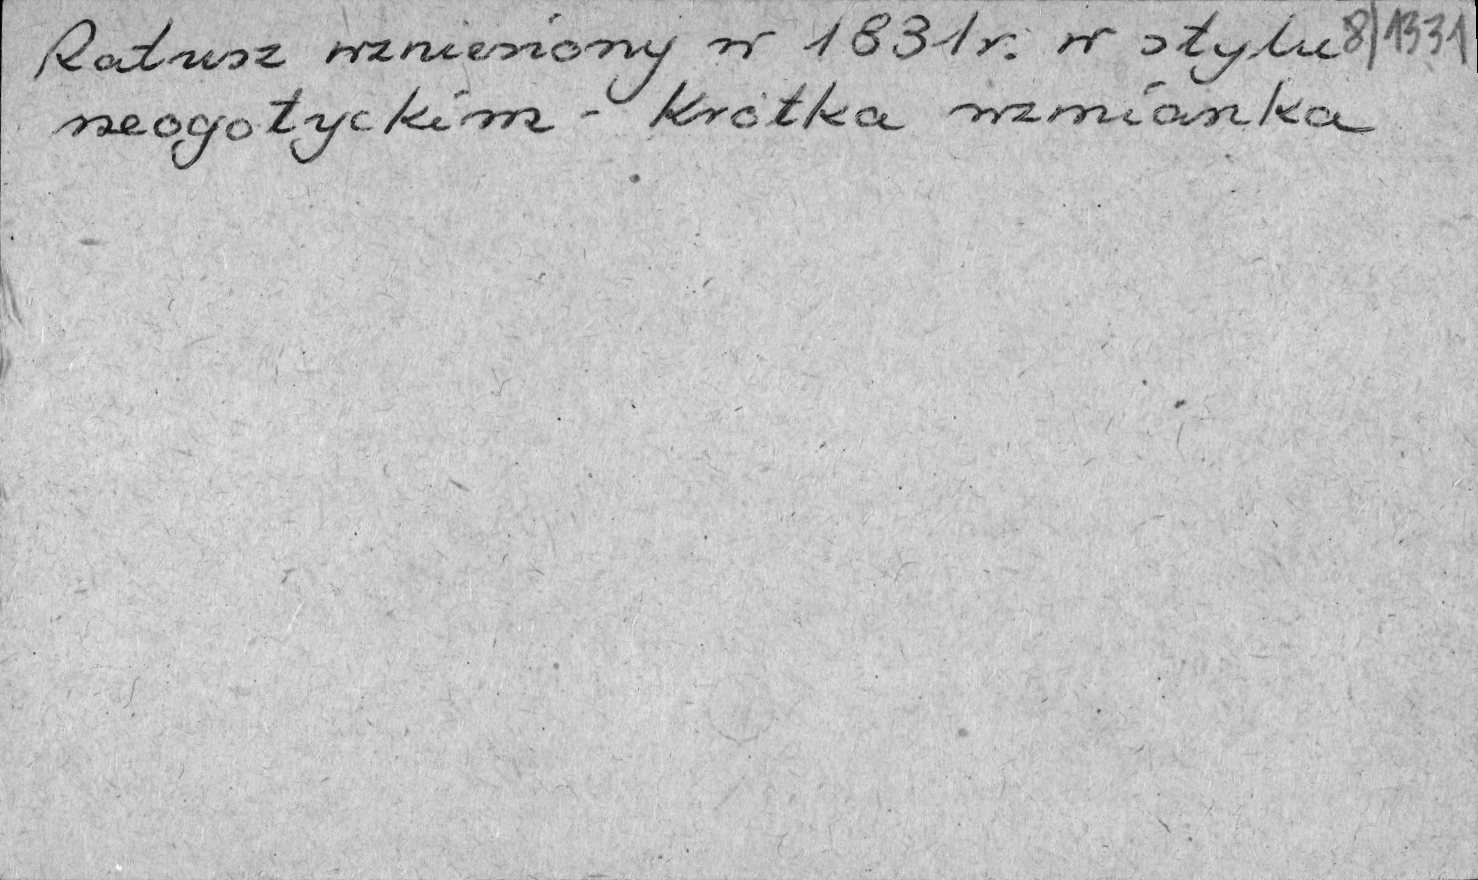 Ratusz wzniesiony w 1831 r. w stylu 8/1331
neogotyckim - Krótka wzmianka